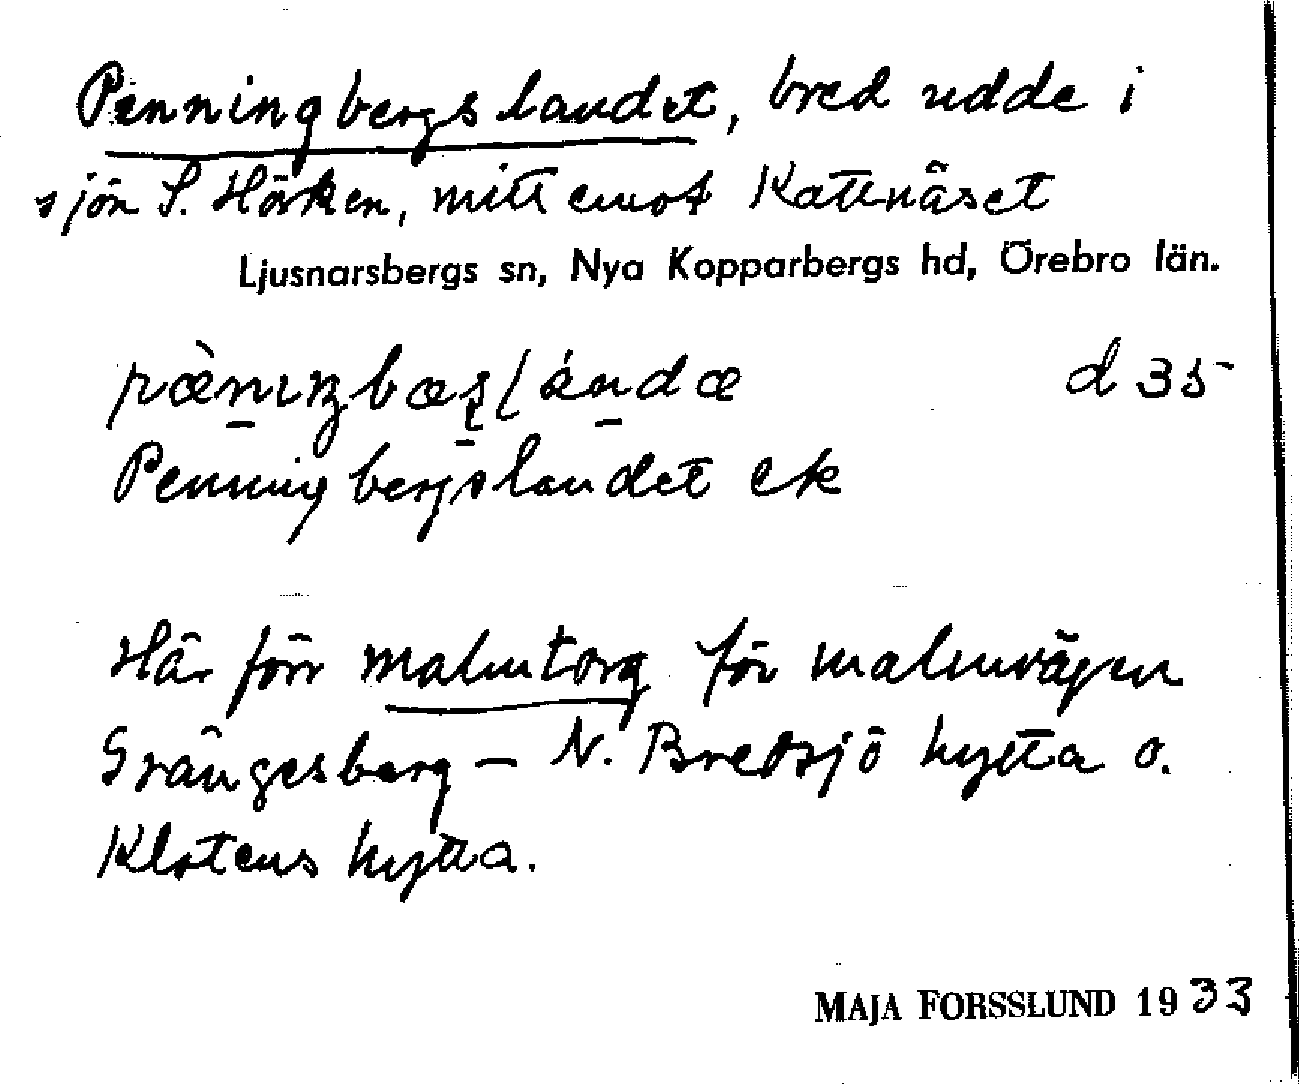 Penningbergslandet, bred udde i
sjön S. Hörken, mitt emot Kattnäset
Ljusnarsbergs sn, Nya Kopparbergs hd, Örebro län.
d 35
Penningbergslandet ek
Här förr malmtorg för malmvägen
Grängesberg – N. Bredsjö hytta o.
Klotens hytta.
MAJA FORSSLUND 1933